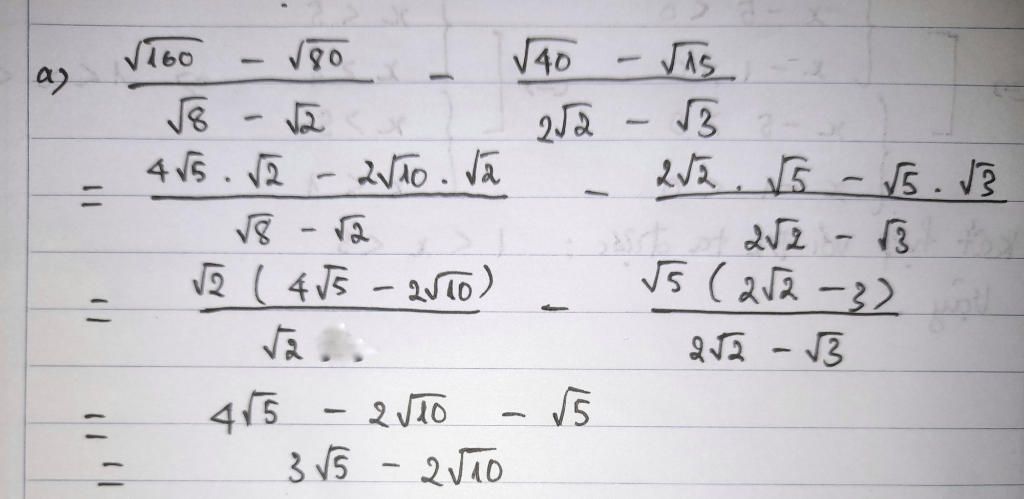 a) \frac{\sqrt{160} - \sqrt{80}}{\sqrt{8} - \sqrt{2}} - \frac{\sqrt{40} - \sqrt{15}}{2\sqrt{2} - \sqrt{3}}
= \frac{4\sqrt{5} . \sqrt{2} - 2\sqrt{10} . \sqrt{2}}{\sqrt{8} - \sqrt{2}} - \frac{2\sqrt{2} . \sqrt{5} - \sqrt{5} . \sqrt{3}}{2\sqrt{2} - \sqrt{3}}
= \frac{\sqrt{2} ( 4\sqrt{5} - 2\sqrt{10} )}{\sqrt{2}} - \frac{\sqrt{5} ( 2\sqrt{2} - 3 )}{2\sqrt{2} - \sqrt{3}}
= 4\sqrt{5} - 2\sqrt{10} - \sqrt{5}
= 3\sqrt{5} - 2\sqrt{10}